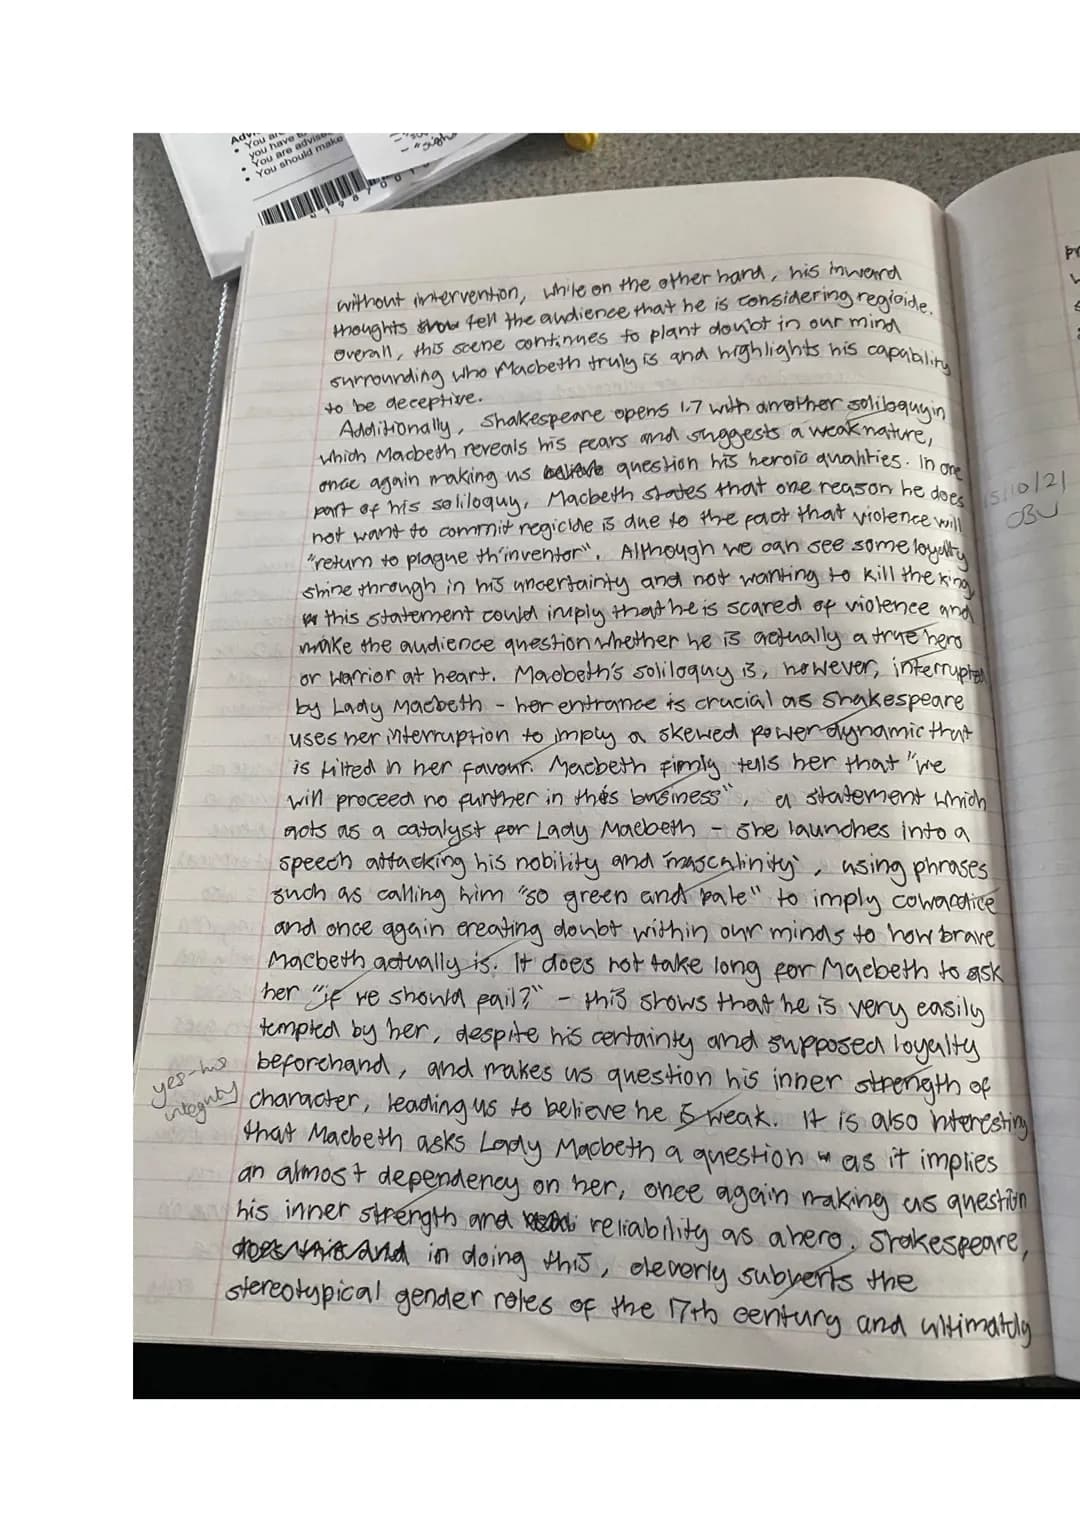 You are
you have
You are advise
You should make
without intervention, while on the other hand, his inward
thoughts show tell the audience that he is considering regicide.
Overall, this scene continues to plant doubt in our mind
surrounding who Macbeth truly is and highlights his capability
to be deceptive.
Additionally, Shakespeare opens 1.7 with another soliloquy in
which Macbeth reveals his fears and suggests a weak nature,
once again making us believe question his heroic qualities. In one
part of his soliloquy, Macbeth states that one reason he does
not want to commit regicide is due to the fact that violence will
"return to plague th'inventor". Although we can see some loyalty
shine through in his uncertainty and not wanting to kill the king
this statement could imply that he is scared of violence and
make the audience question whether he is actually a true hero
or warrior at heart. Macbeth's soliloquy is, however, interrupted
by Lady Macbeth - her entrance is crucial as Shakespeare
uses her interruption to imply a skewed power dynamic that
is tilted in her favour. Macbeth firmly tells her that "we
will proceed no further in this business", a statement which
acts as a catalyst for Lady Macbeth - she launches into a
speech attacking his nobility and 'masculinity', using phrases
such as calling him "so green and pale" to imply cowardice
and once again creating doubt within our minds to how brave
Macbeth actually is. It does not take long for Macbeth to ask
her "if we should fail?" - this shows that he is very easily
tempted by her, despite his certainty and supposed loyalty
beforehand, and makes us question his inner strength of
yes - his
integrity
character, leading us to believe he is weak. It is also interesting
that Macbeth asks Lady Macbeth a question as it implies
an almost dependency on her, once again making us question
his inner strength and reliability as a hero. Shakespeare,
does this and in doing this, cleverly subverts the
stereotypical gender roles of the 17th century and ultimately
15/10/21
OBU